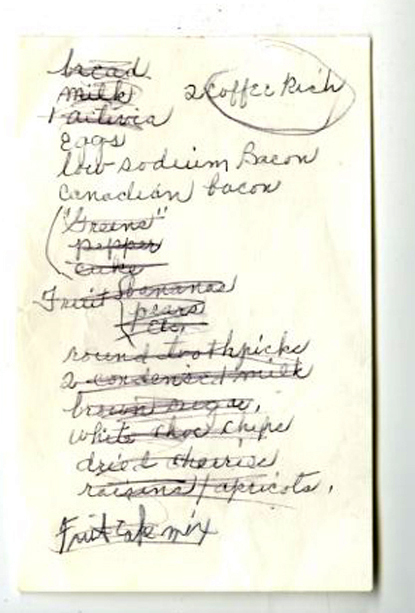 bread
milk
2 Coffee Rich
Activia
Eggs
low sodium Bacon
Canadian bacon
"Greens"
pepper
cuke
Fruit bananas
pears
etc.
round toothpicks
2 condensed milk
brown sugar,
white choc chips
dried cherries
raisins / apricots,
Fruit cake mix